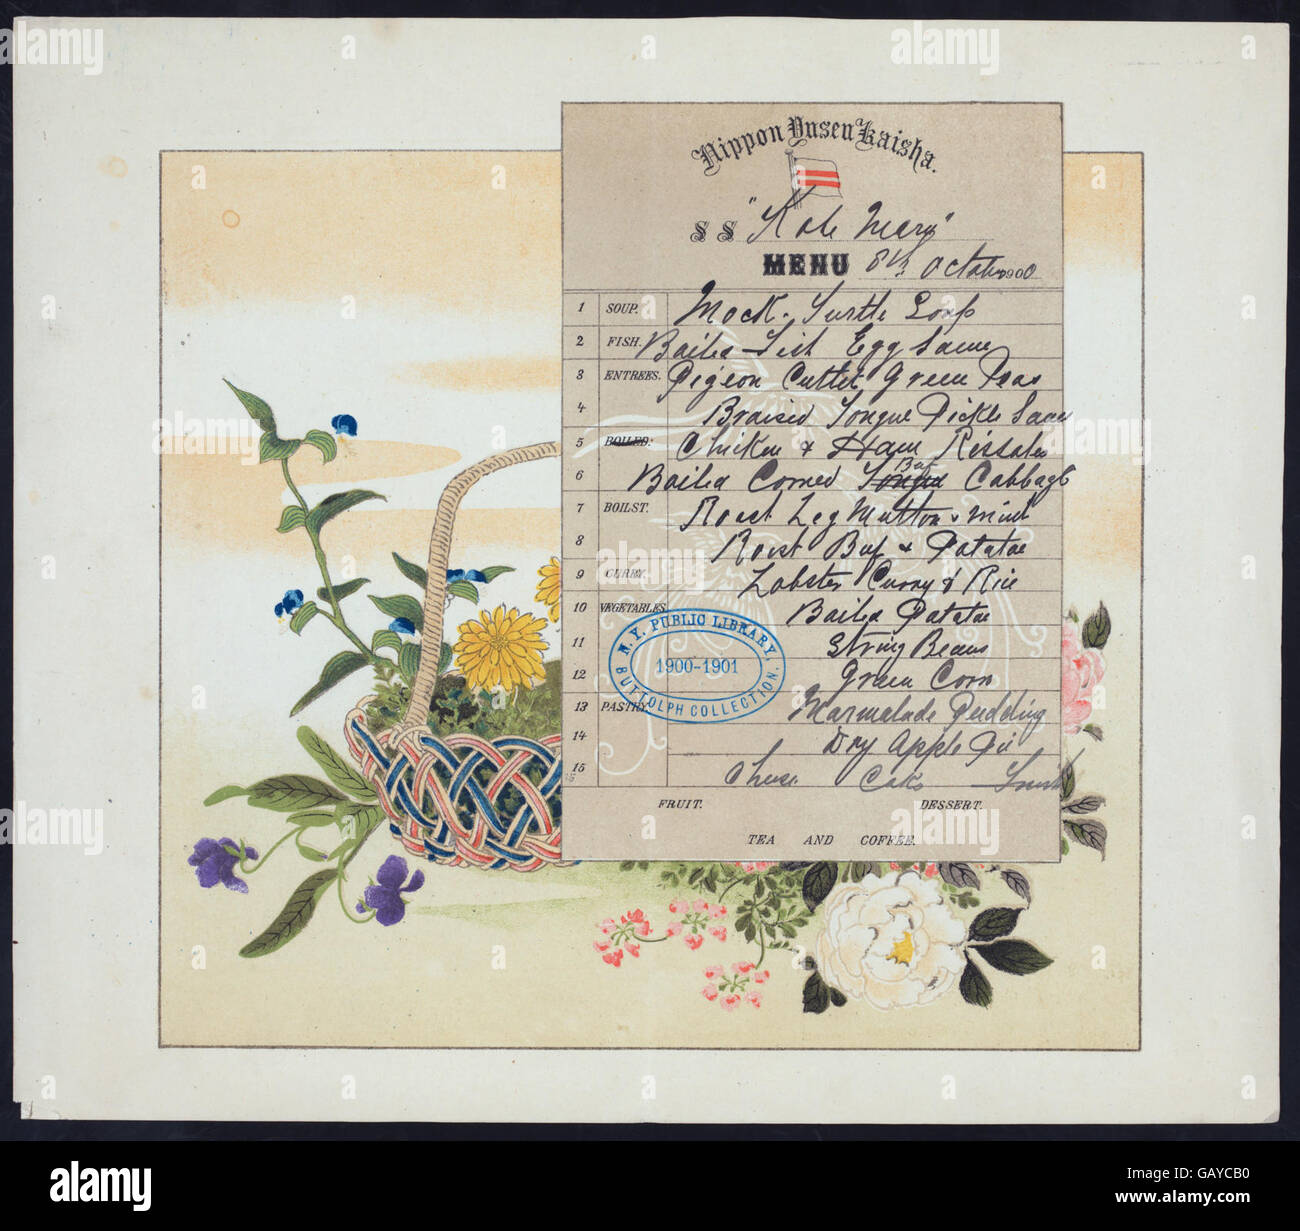 Nippon Yusen Kaisha.
SS "Kobe Maru"
MENU 8th October 1900
1 SOUP. Mock Turtle Soup
2 FISH. Boiled Fish Egg Sauce
3 ENTREES. Pigeon Cutlet Green Peas
4 Braised Tongue Pickle Sauce
5 BOILED. Chicken & Ham Rissoles
6 Boiled Corned Tongue Beef Cabbage
7 BOILST. Roast Leg Mutton & mint
8 Roast Beef & Potatoe
9 CURRY. Lobster Curry & Rice
10 VEGETABLES. Boiled Potatoe
11 String Beans
12 Green Corn
13 PASTRY. Marmalade Pudding
14 Dry Apple Pie
15 Cheese Cake Fruit
FRUIT. DESSERT.
TEA AND COFFEE.
N.Y. PUBLIC LIBRARY,
1900-1901
BUTTOLPH COLLECTION.
alamy
a
alamy
www.alamy.com
Image ID: GAYCB0